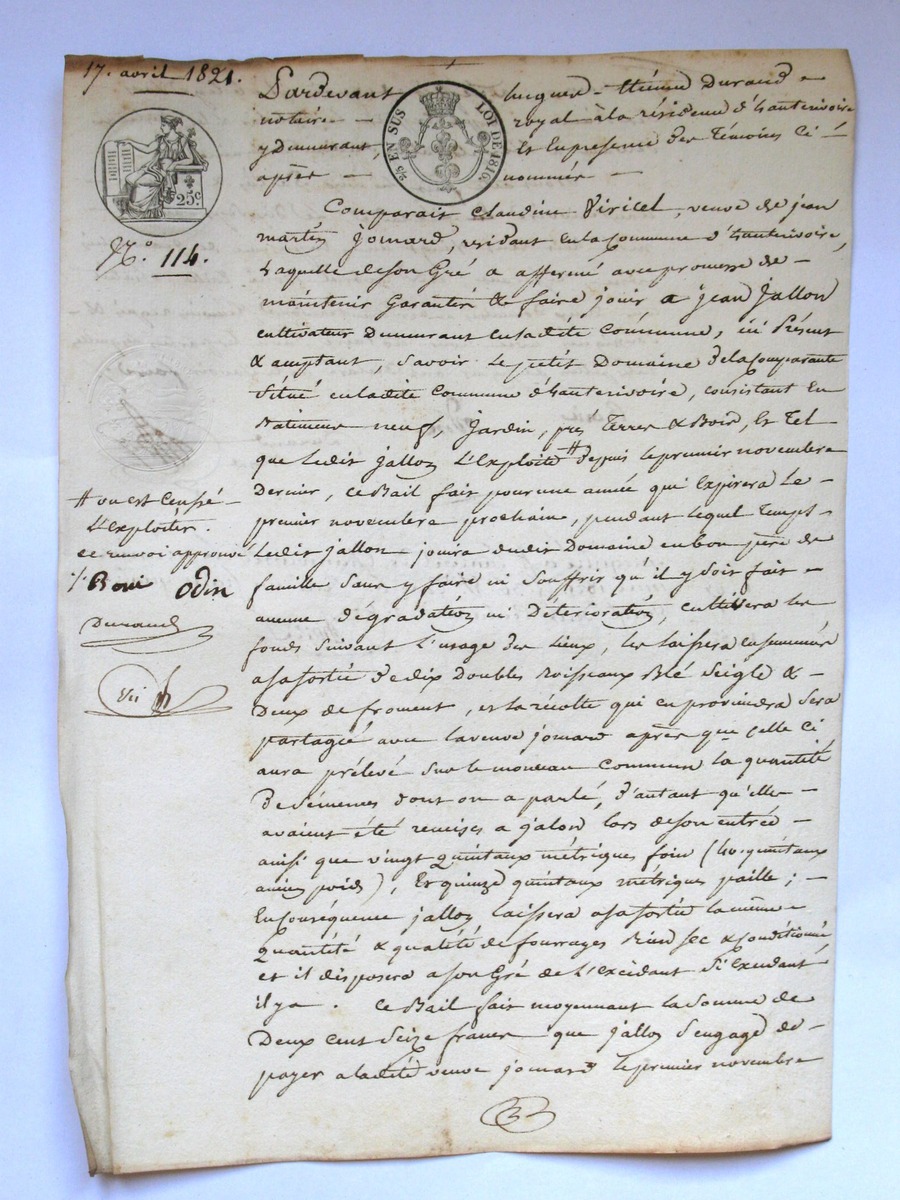 17. avril 1821.
Pardevant hugues-Etienne Durand -
notaire - royal à la résidence d'hauterivoire
y Demeurant, Et En présence des Témoins Ci -
après - nommés -
2/5 EN SUS LOI DE 1816.
25c.
N.o 114.
Comparait Claudine Viricel, veuve de jean
martin Jomard, résidant En la Commune d'hauterivoire,
Laquelle de son Gré a affermé avec promesse de -
maintenir Garantir & faire jouir a jean Jallon
cultivateur Demeurant en ladite Commune, ici Présent
& acceptant, savoir Le petit Domaine de la Comparante
Situé en ladite Commune d'hauterivoire, consistant En
Batiment neuf, Jardin, prés Terres & Bois, Et Tel
que Ledit jallon L'Exploite # depuis le premier novembre
Dernier, ce Bail fait pour une année qui Expirera Le -
premier novembre prochain, pendant lequel Temps -
Ledit jallon jouira dudit Domaine en bon père de
famille Sans y faire ni Souffrir qu'il y soit fait -
aucune dégradation ni Détérioration, cultivera les
fonds suivant L'usage des Lieux, les laissera ensemencés
a sa sortie de dix Doubles Boisseaux Blé Seigle & -
Deux de froment, et la récolte qui en proviendra sera
partagée avec la veuve jomard après que celle ci
aura prélevé sur le monceau commun la quantité
De Sémences dont on a parlé, d'autant qu'elles -
avaient été remises a jalon lors de son entrée -
ainsi que vingt quintaux métriques foin (40. quintaux
ancien poids), Et quinze quintaux métriques paille; -
En Conséquence jallon laissera a sa sortie la même -
Quantité & qualité de fourrages Bien sec & Conditionné
et il disposera a son Gré de L'excédant Si Excédant
il y a. Ce Bail fait moyennant la Somme de
Deux cent Seize francs que jallon S'engage de -
payer a ladite veuve jomard le premier novembre
# ou est Censé -
L'exploiter.
ce renvoi approuvé
Odin
Durand